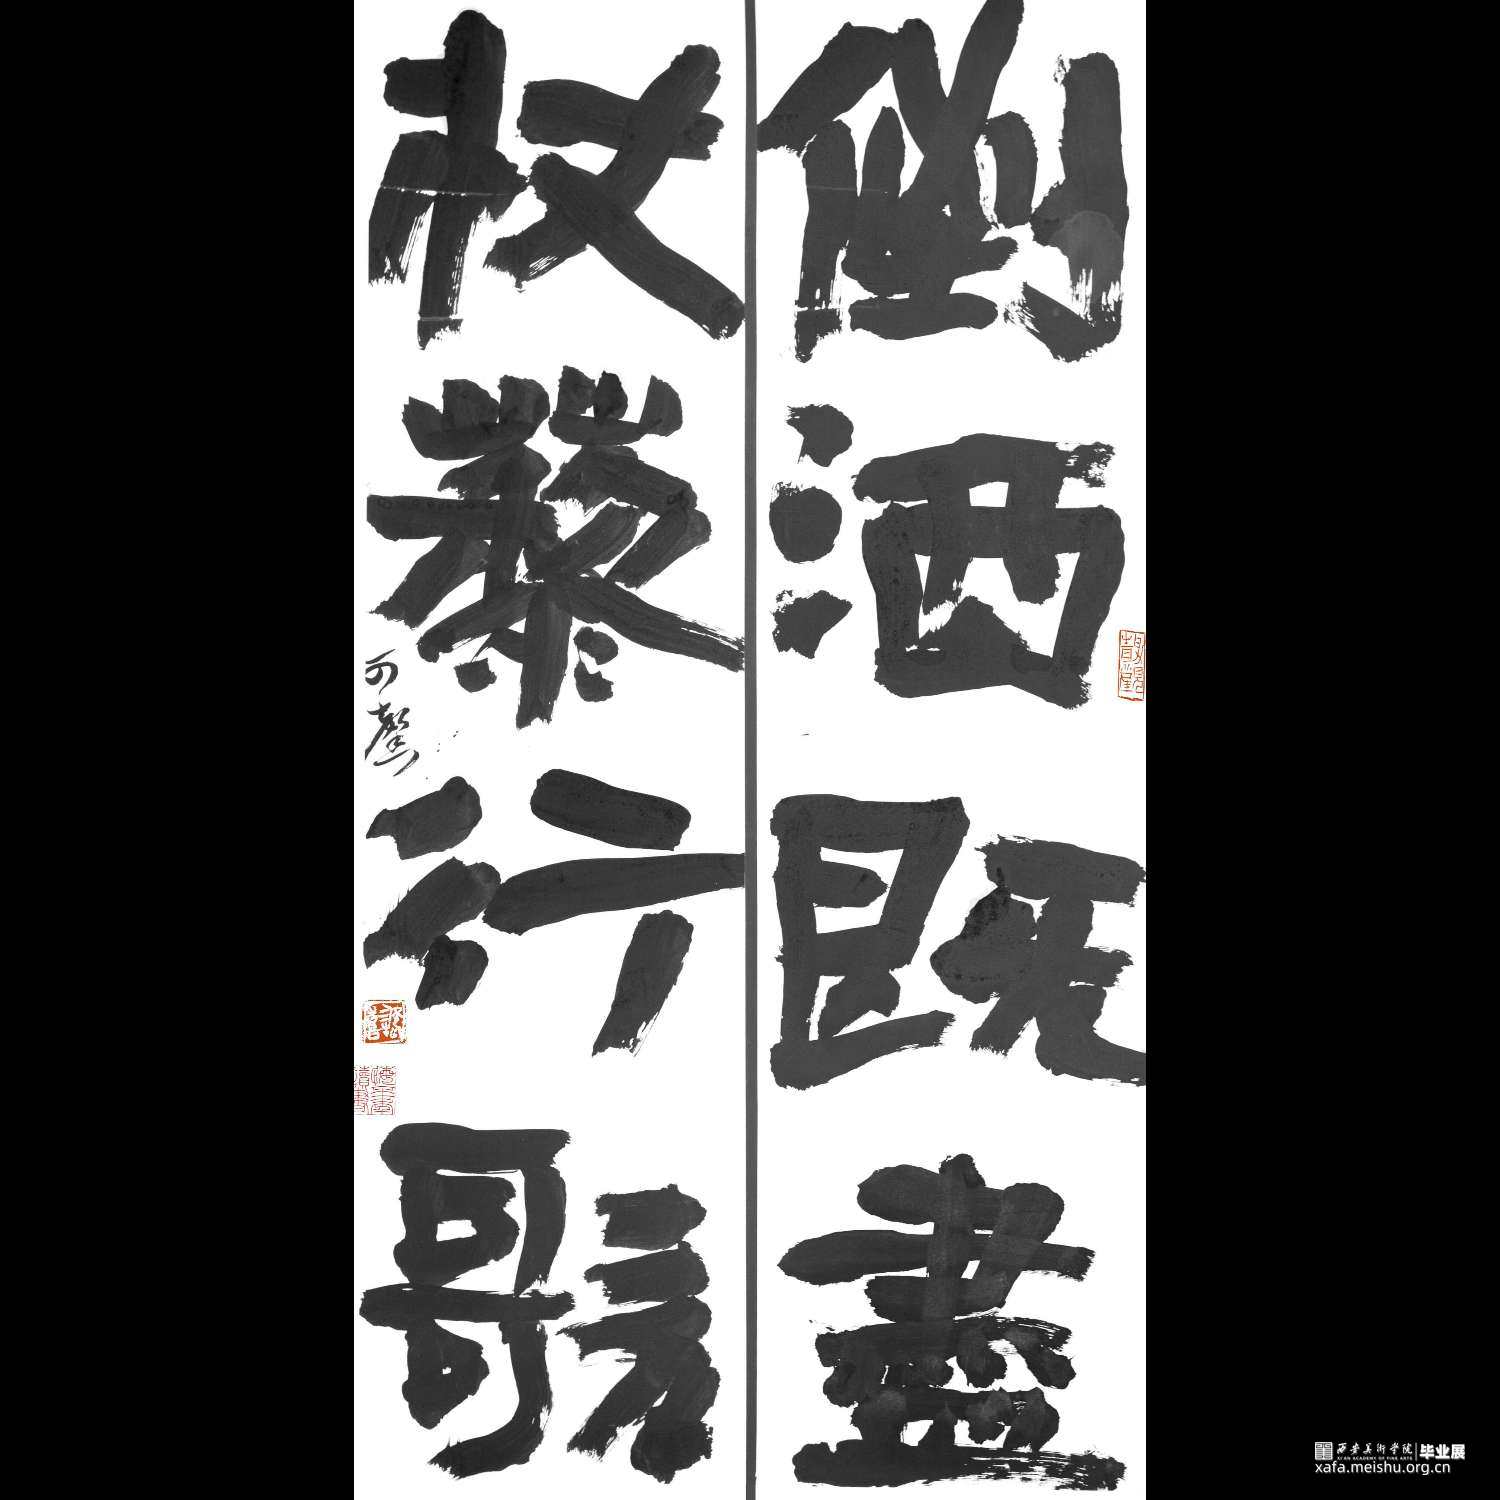 倒酒既盡
杖藜行歌
西安美術學院 毕业展
XI'AN ACADEMY OF FINE ARTS
xafa.meishu.org.cn